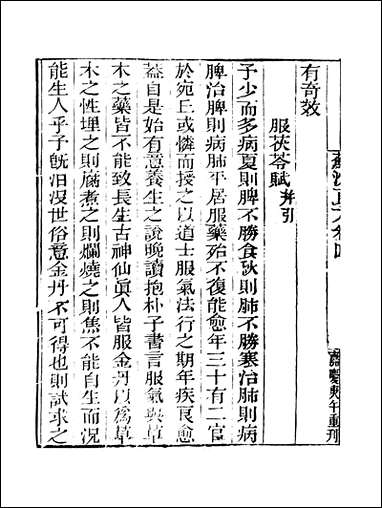 蘇沈良方卷四
嘉慶庚午重刊
有奇效
服茯苓賦并引
子少而多病夏則脾不勝食秋則肺不勝寒治肺則病
脾治脾則病肺平居服藥殆不復能愈年三十有二官
於宛丘或憐而授之以道士服氣法行之期年疾良愈
葢自是始有意養生之說晚讀抱朴子書言服氣與草
木之藥皆不能致長生古神仙眞人皆服金丹以爲草
木之性埋之則腐煮之則爛燒之則焦不能自生而况
能生人乎子旣汨沒世俗意金丹不可得也則試求之